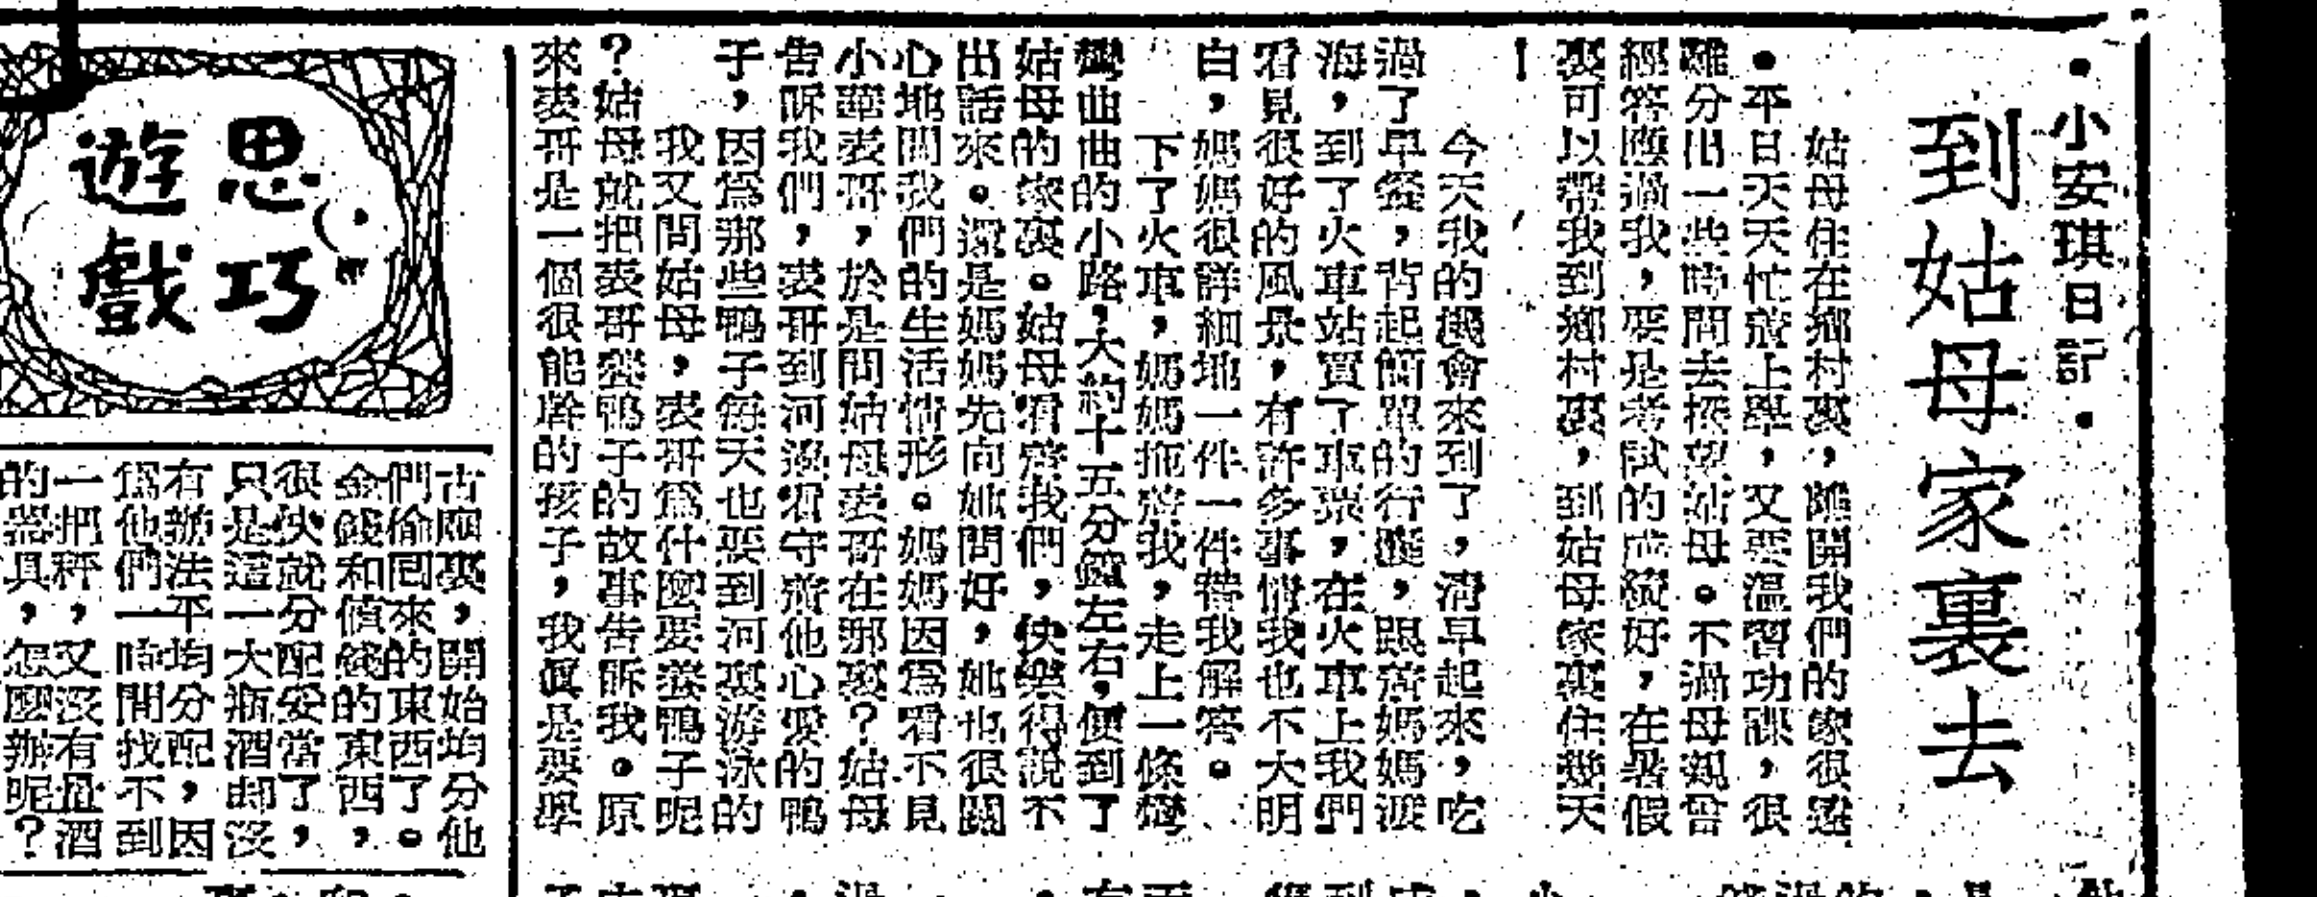 •小安琪日記•
到姑母家裏去
姑母住在鄉村裏，離開我們的家很遠
•平日天天忙着上學，又要溫習功課，很
難分出一些時間去探望姑母。不過母親曾
經答應過我，要是考試的成績好，在暑假
裏可以帶我到鄉村裏，到姑母家裏住幾天
！
今天我的機會來到了，清早起來，吃
過了早餐，背起簡單的行囊，跟着媽媽渡
海，到了火車站買了車票，在火車上我們
看見很好的風景，有許多事情我也不大明
白，媽媽很詳細地一件一件替我解答。
下了火車，媽媽拖着我，走上一條彎
彎曲曲的小路，大約十五分鐘左右，便到了
姑母的家裏。姑母看着我們，快樂得說不
出話來。還是媽媽先向她問好，她也很關
心地問我們的生活情形。媽媽因為看不見
小華表哥，於是問姑母表哥在那裏？姑母
告訴我們，表哥到河邊看守着他心愛的鴨
子，因為那些鴨子每天也要到河裏游泳的
我又問姑母，表哥為什麼要養鴨子呢
？姑母就把表哥養鴨子的故事告訴我。原
來表哥是一個很能幹的孩子，我眞是要學
思巧
遊戲
古廟裏，開始均分他
們偷回來的東西了。
金錢和值錢的東西，
很快就分配妥當了，
只是這一大瓶酒却沒
有辦法平均分配，因
為他們一時間找不到
一把秤，又沒有量酒
的器具，怎麼辦呢？